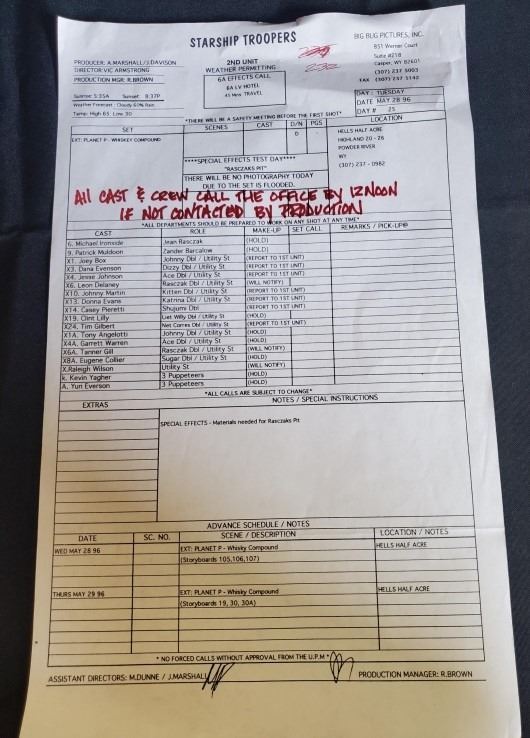 STARSHIP TROOPERS
BIG BUG PICTURES, INC.
851 Werner Court
Suite #258
Casper, WY 82601
(307) 237 5003
FAX (307) 237 5142
PRODUCER: A.MARSHALL/J.DAVISON
DIRECTOR: VIC ARMSTRONG
PRODUCTION MGR: R.BROWN
2ND UNIT
WEATHER PERMITTING
6A EFFECTS CALL
6A LV HOTEL
45 Mins TRAVEL
Sunrise: 5:35A Sunset: 8:37P
Weather Forecast: Cloudy 60% Rain
Temp: High 65: Low 30
DAY: TUESDAY
DATE MAY 28 96
DAY # 25
*THERE WILL BE A SAFETY MEETING BEFORE THE FIRST SHOT*
SET SCENES CAST D/N PGS LOCATION
EXT: PLANET P - WHISKEY COMPOUND D
HELLS HALF ACRE
HIGHLAND 20 - 26
POWDER RIVER
WY
(307) 237 - 0982
****SPECIAL EFFECTS TEST DAY****
"RASCZAKS PIT"
THERE WILL BE NO PHOTOGRAPHY TODAY
DUE TO THE SET IS FLOODED.
All CAST & CREW CALL THE OFFICE BY 12NOON
IF NOT CONTACTED BY PRODUCTION
*ALL DEPARTMENTS SHOULD BE PREPARED TO WORK ON ANY SHOT AT ANY TIME*
CAST ROLE MAKE-UP SET CALL REMARKS / PICK-UP@
6. Michael Ironside Jean Rasczak (HOLD)
9. Patrick Muldoon Zander Barcalow (HOLD)
X1. Joey Box Johnny Dbl / Utility St (REPORT TO 1ST UNIT)
X3. Dana Evenson Dizzy Dbl / Utility St (REPORT TO 1ST UNIT)
X4. Jesse Johnson Ace Dbl / Utility St (REPORT TO 1ST UNIT)
X6. Leon Delaney Rasczak Dbl / Utility St (WILL NOTIFY)
X10. Johnny Martin Kitten Dbl / Utility St (REPORT TO 1ST UNIT)
X13. Donna Evans Katrina Dbl / Utility St (REPORT TO 1ST UNIT)
X14. Casey Pieretti Shujumi Dbl (REPORT TO 1ST UNIT)
X19. Clint Lilly Willy Dbl / Utility St (HOLD)
X24. Tim Gilbert Net Corres Dbl / Utility St (REPORT TO 1ST UNIT)
X1A. Tony Angelotti Johnny Dbl / Utility St (HOLD)
X4A. Garrett Warren Ace Dbl / Utility St (HOLD)
X6A. Tanner Gill Rasczak Dbl / Utility St (WILL NOTIFY)
X8A. Eugene Collier Sugar Dbl / Utility St (HOLD)
X.Raleigh Wilson Utility St (WILL NOTIFY)
K. Kevin Yagher 3 Puppeteers (HOLD)
A. Yuri Everson 3 Puppeteers (HOLD)
*ALL CALLS ARE SUBJECT TO CHANGE*
EXTRAS NOTES / SPECIAL INSTRUCTIONS
SPECIAL EFFECTS - Materials needed for Rasczaks Pit
ADVANCE SCHEDULE / NOTES
DATE SC. NO. SCENE / DESCRIPTION LOCATION / NOTES
WED MAY 28 96 EXT: PLANET P - Whisky Compound HELLS HALF ACRE
(Storyboards 105,106,107)
THURS MAY 29 96 EXT: PLANET P - Whisky Compound HELLS HALF ACRE
(Storyboards 19, 30, 30A)
* NO FORCED CALLS WITHOUT APPROVAL FROM THE U.P.M *
ASSISTANT DIRECTORS: M.DUNNE / J.MARSHALL PRODUCTION MANAGER: R.BROWN